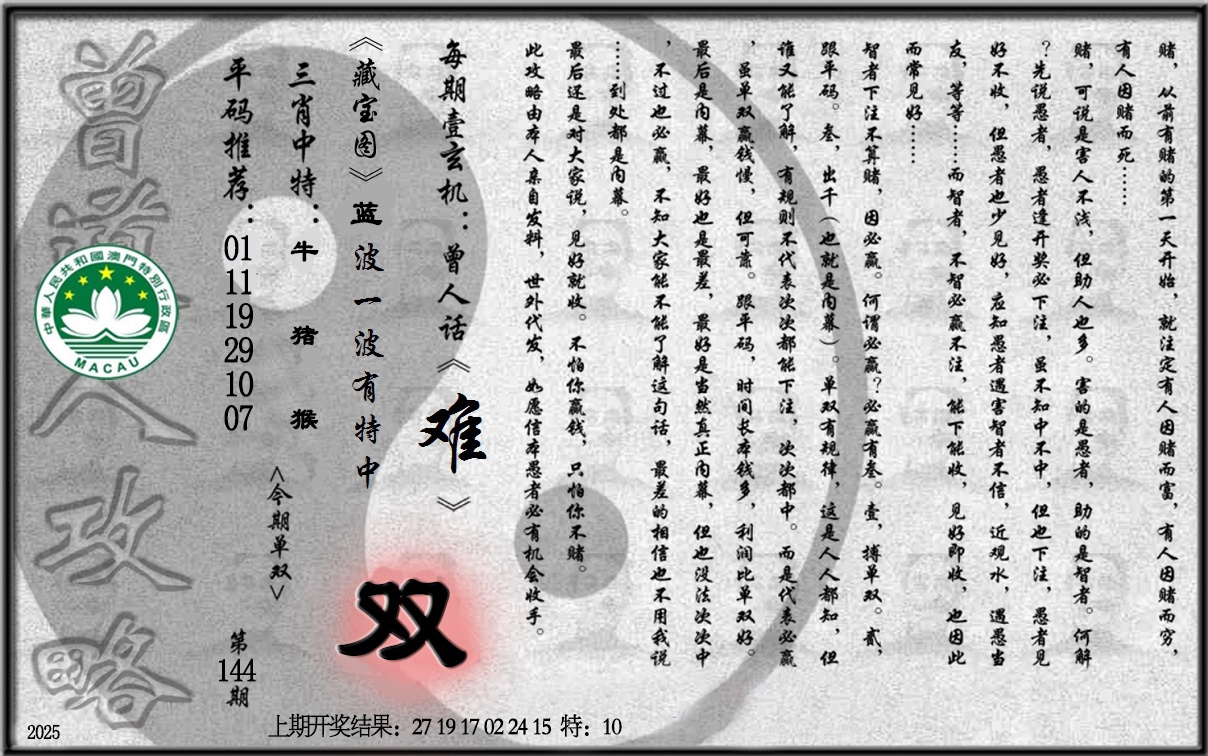 赌，从前有赌的第一天开始，就注定有人因赌而富，有人因赌而穷，
有人因赌而死……
赌，可说是害人不浅，但助人也多。害的是愚者，助的是智者。何解
？先说愚者，愚者逢开奖必下注，虽不知中不中，但也下注，愚者见
好不收，但愚者也少见好，应知愚者遇害智者不信，近观水，遇愚当
友，等等……而智者，不智必赢不注，能下能收，见好即收，也因此
而常见好……
智者下注不算赌，因必赢。何谓必赢？必赢有叁。壹，搏单双。贰，
跟平码。叁，出千（也就是内幕）。单双有规律，这是人人都知，但
谁又能了解，有规则不代表次次都能下注，次次都中。而是代表必赢
，虽单双赢钱慢，但可靠。跟平码，时间长本钱多，利润比单双好。
最后是内幕，最好也是最差，最好是当然真正内幕，但也没法次次中
，不过也必赢，不知大家能不能了解这句话，最差的相信也不用我说
……到处都是内幕。
最后还是对大家说，见好就收。不怕你赢钱，只怕你不赌。
此攻略由本人亲自发料，世外代发，如愿信本愚者必有机会收手。
每期壹玄机：曾人话《难》
《藏宝图》蓝波一波有特中
双
三肖中特：牛 猪 猴
<今期单双>
平码推荐：01 11 19 29 10 07
第144期
曾道人攻略
中華人民共和國澳門特別行政區
MACAU
2025
上期开奖结果：27 19 17 02 24 15 特：10